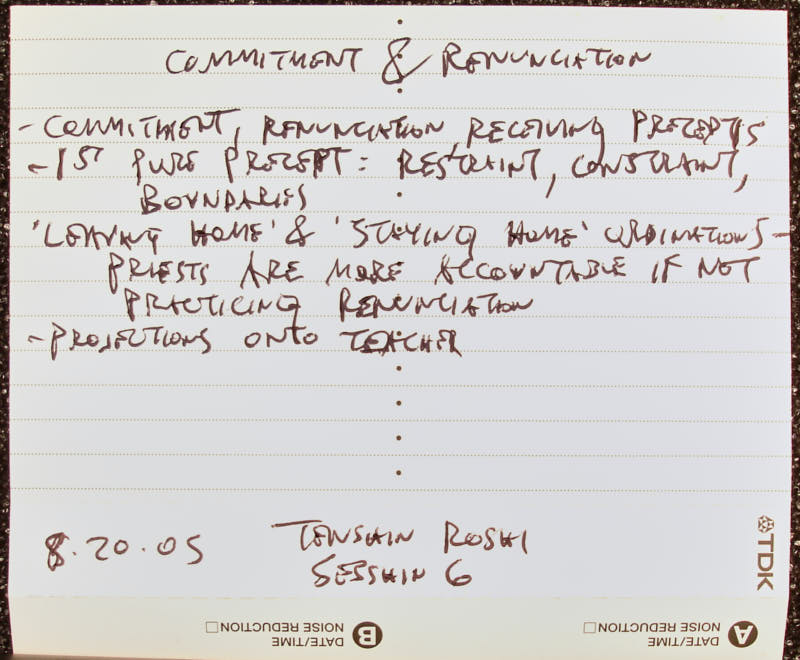 COMMITMENT & RENUNCIATION
- COMMITMENT, RENUNCIATION, RECEIVING PRECEPTS
- 1ST PURE PRECEPT: RESTRAINT, CONSTRAINT,
BOUNDARIES
'LEAVING HOME' & 'STAYING HOME' ORDINATIONS -
PRIESTS ARE MORE ACCOUNTABLE IF NOT
PRACTICING RENUNCIATION
- PROJECTIONS ONTO TEACHER
8.20.05 TENSHIN ROSHI
SESSHIN 6
TDK
A DATE/TIME NOISE REDUCTION
B DATE/TIME NOISE REDUCTION